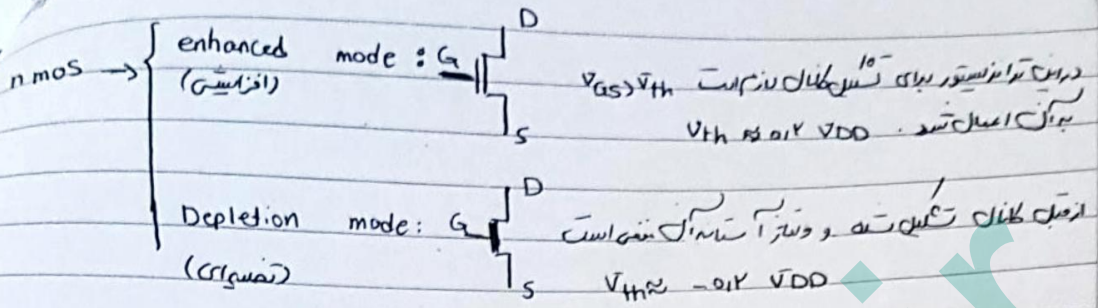 nmos → enhanced mode : G D S در این ترانزیستور برای تشکیل کانال لازم است VGS>Vth
(افزایشی) به آن اعمال شود. Vth ≈ ۰٫۲ VDD
Depletion mode: G D S از قبل کانال تشکیل شده و ولتاژ آستانه آن منفی است
(تخلیه‌ای) Vth ≈ -۰٫۲ VDD